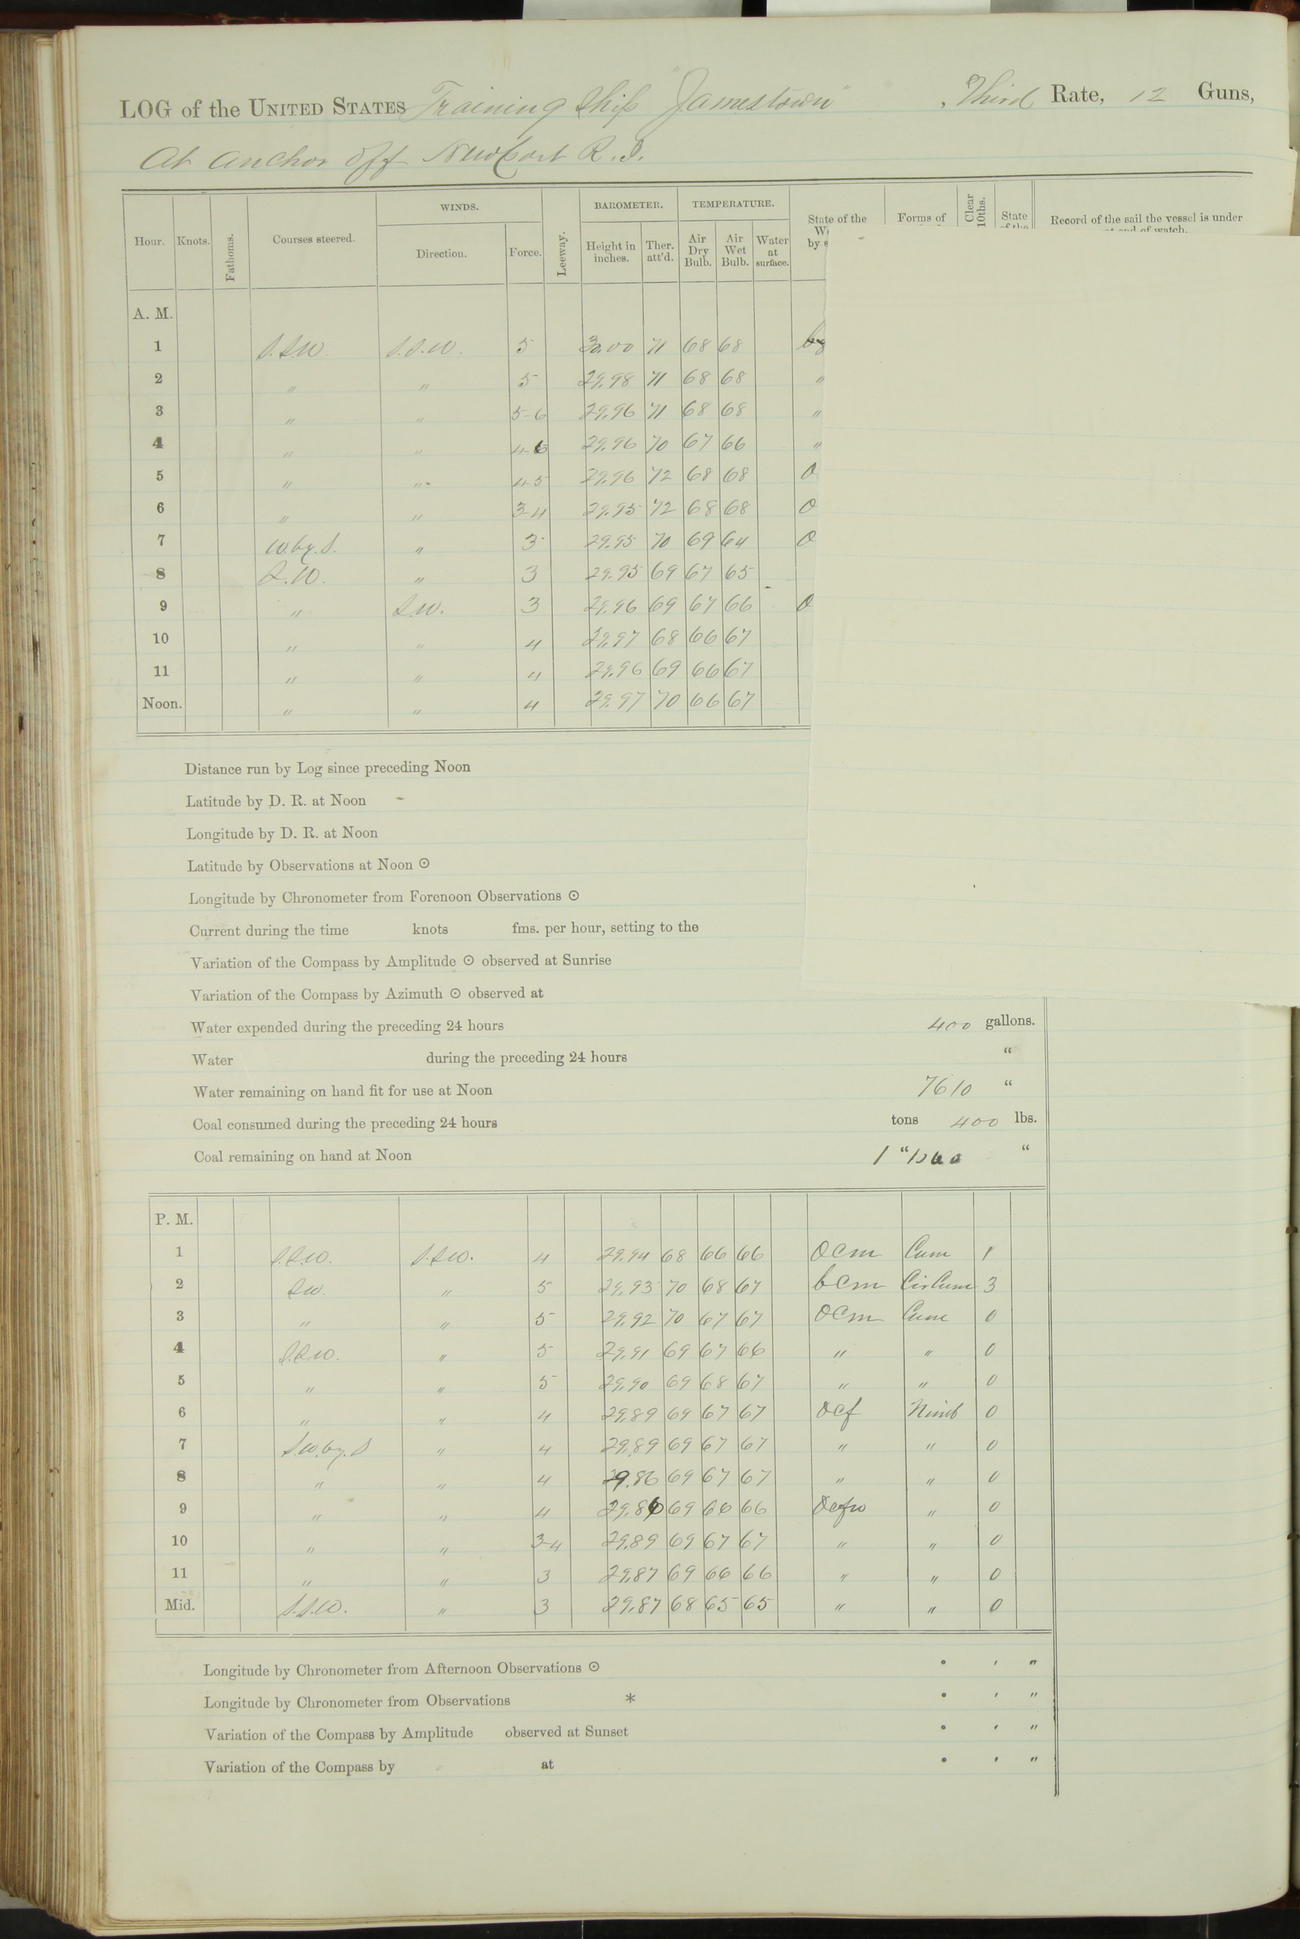 LOG of the UNITED STATES Training Ship "Jamestown", Third Rate, 12 Guns,
At anchor off Newport R. I.
Hour. Knots. Fathoms. Courses steered. WINDS. Direction. Force. Leeway. BAROMETER. Height in inches. Ther. att'd. TEMPERATURE. Air Dry Bulb. Air Wet Bulb. Water at surface. State of the Forms of Clear 10ths. State Record of the sail the vessel is under
A. M.
1 S.S.W. S.S.W. 5 30.00 71 68 68
2 " " 5 29.98 71 68 68 "
3 " " 5-6 29.96 71 68 68 "
4 " " 4-6 29.96 70 67 66 "
5 " " 4-5 29.96 72 68 68 O
6 " " 3-4 29.95 72 68 68 O
7 W by. S. " 3 29.95 70 69 64 O
8 S.W. " 3 29.95 69 67 65
9 " S.W. 3 29.96 69 67 66 O
10 " " 4 29.97 68 66 67
11 " " 4 29.96 69 66 67
Noon. " " 4 29.97 70 66 67
Distance run by Log since preceding Noon
Latitude by D. R. at Noon
Longitude by D. R. at Noon
Latitude by Observations at Noon ⊙
Longitude by Chronometer from Forenoon Observations ⊙
Current during the time knots fms. per hour, setting to the
Variation of the Compass by Amplitude ⊙ observed at Sunrise
Variation of the Compass by Azimuth ⊙ observed at
Water expended during the preceding 24 hours 400 gallons.
Water during the preceding 24 hours "
Water remaining on hand fit for use at Noon 7610 "
Coal consumed during the preceding 24 hours tons 400 lbs.
Coal remaining on hand at Noon 1 " "
P. M.
1 S.S.W. S.S.W. 4 29.94 68 66 66 Ocm Cum 1
2 SW. " 5 29.93 70 68 67 bcm CirCum 3
3 " " 5 29.92 70 67 67 Ocm Cum 0
4 S.S.W. " 5 29.91 69 67 66 " " 0
5 " " 5 29.90 69 68 67 " " 0
6 " " 4 29.89 69 67 67 Ocf Nimb 0
7 S.W. by. S " 4 29.89 69 67 67 " " 0
8 " " 4 29.86 69 67 67 " " 0
9 " " 4 29.86 69 66 66 Ocfw " 0
10 " " 3-4 29.89 69 67 67 " " 0
11 " " 3 29.87 69 66 66 " " 0
Mid. S.S.W. " 3 29.87 68 65 65 " " 0
Longitude by Chronometer from Afternoon Observations ⊙ ° ′ ″
Longitude by Chronometer from Observations * ° ′ ″
Variation of the Compass by Amplitude observed at Sunset ° ′ ″
Variation of the Compass by at ° ′ ″